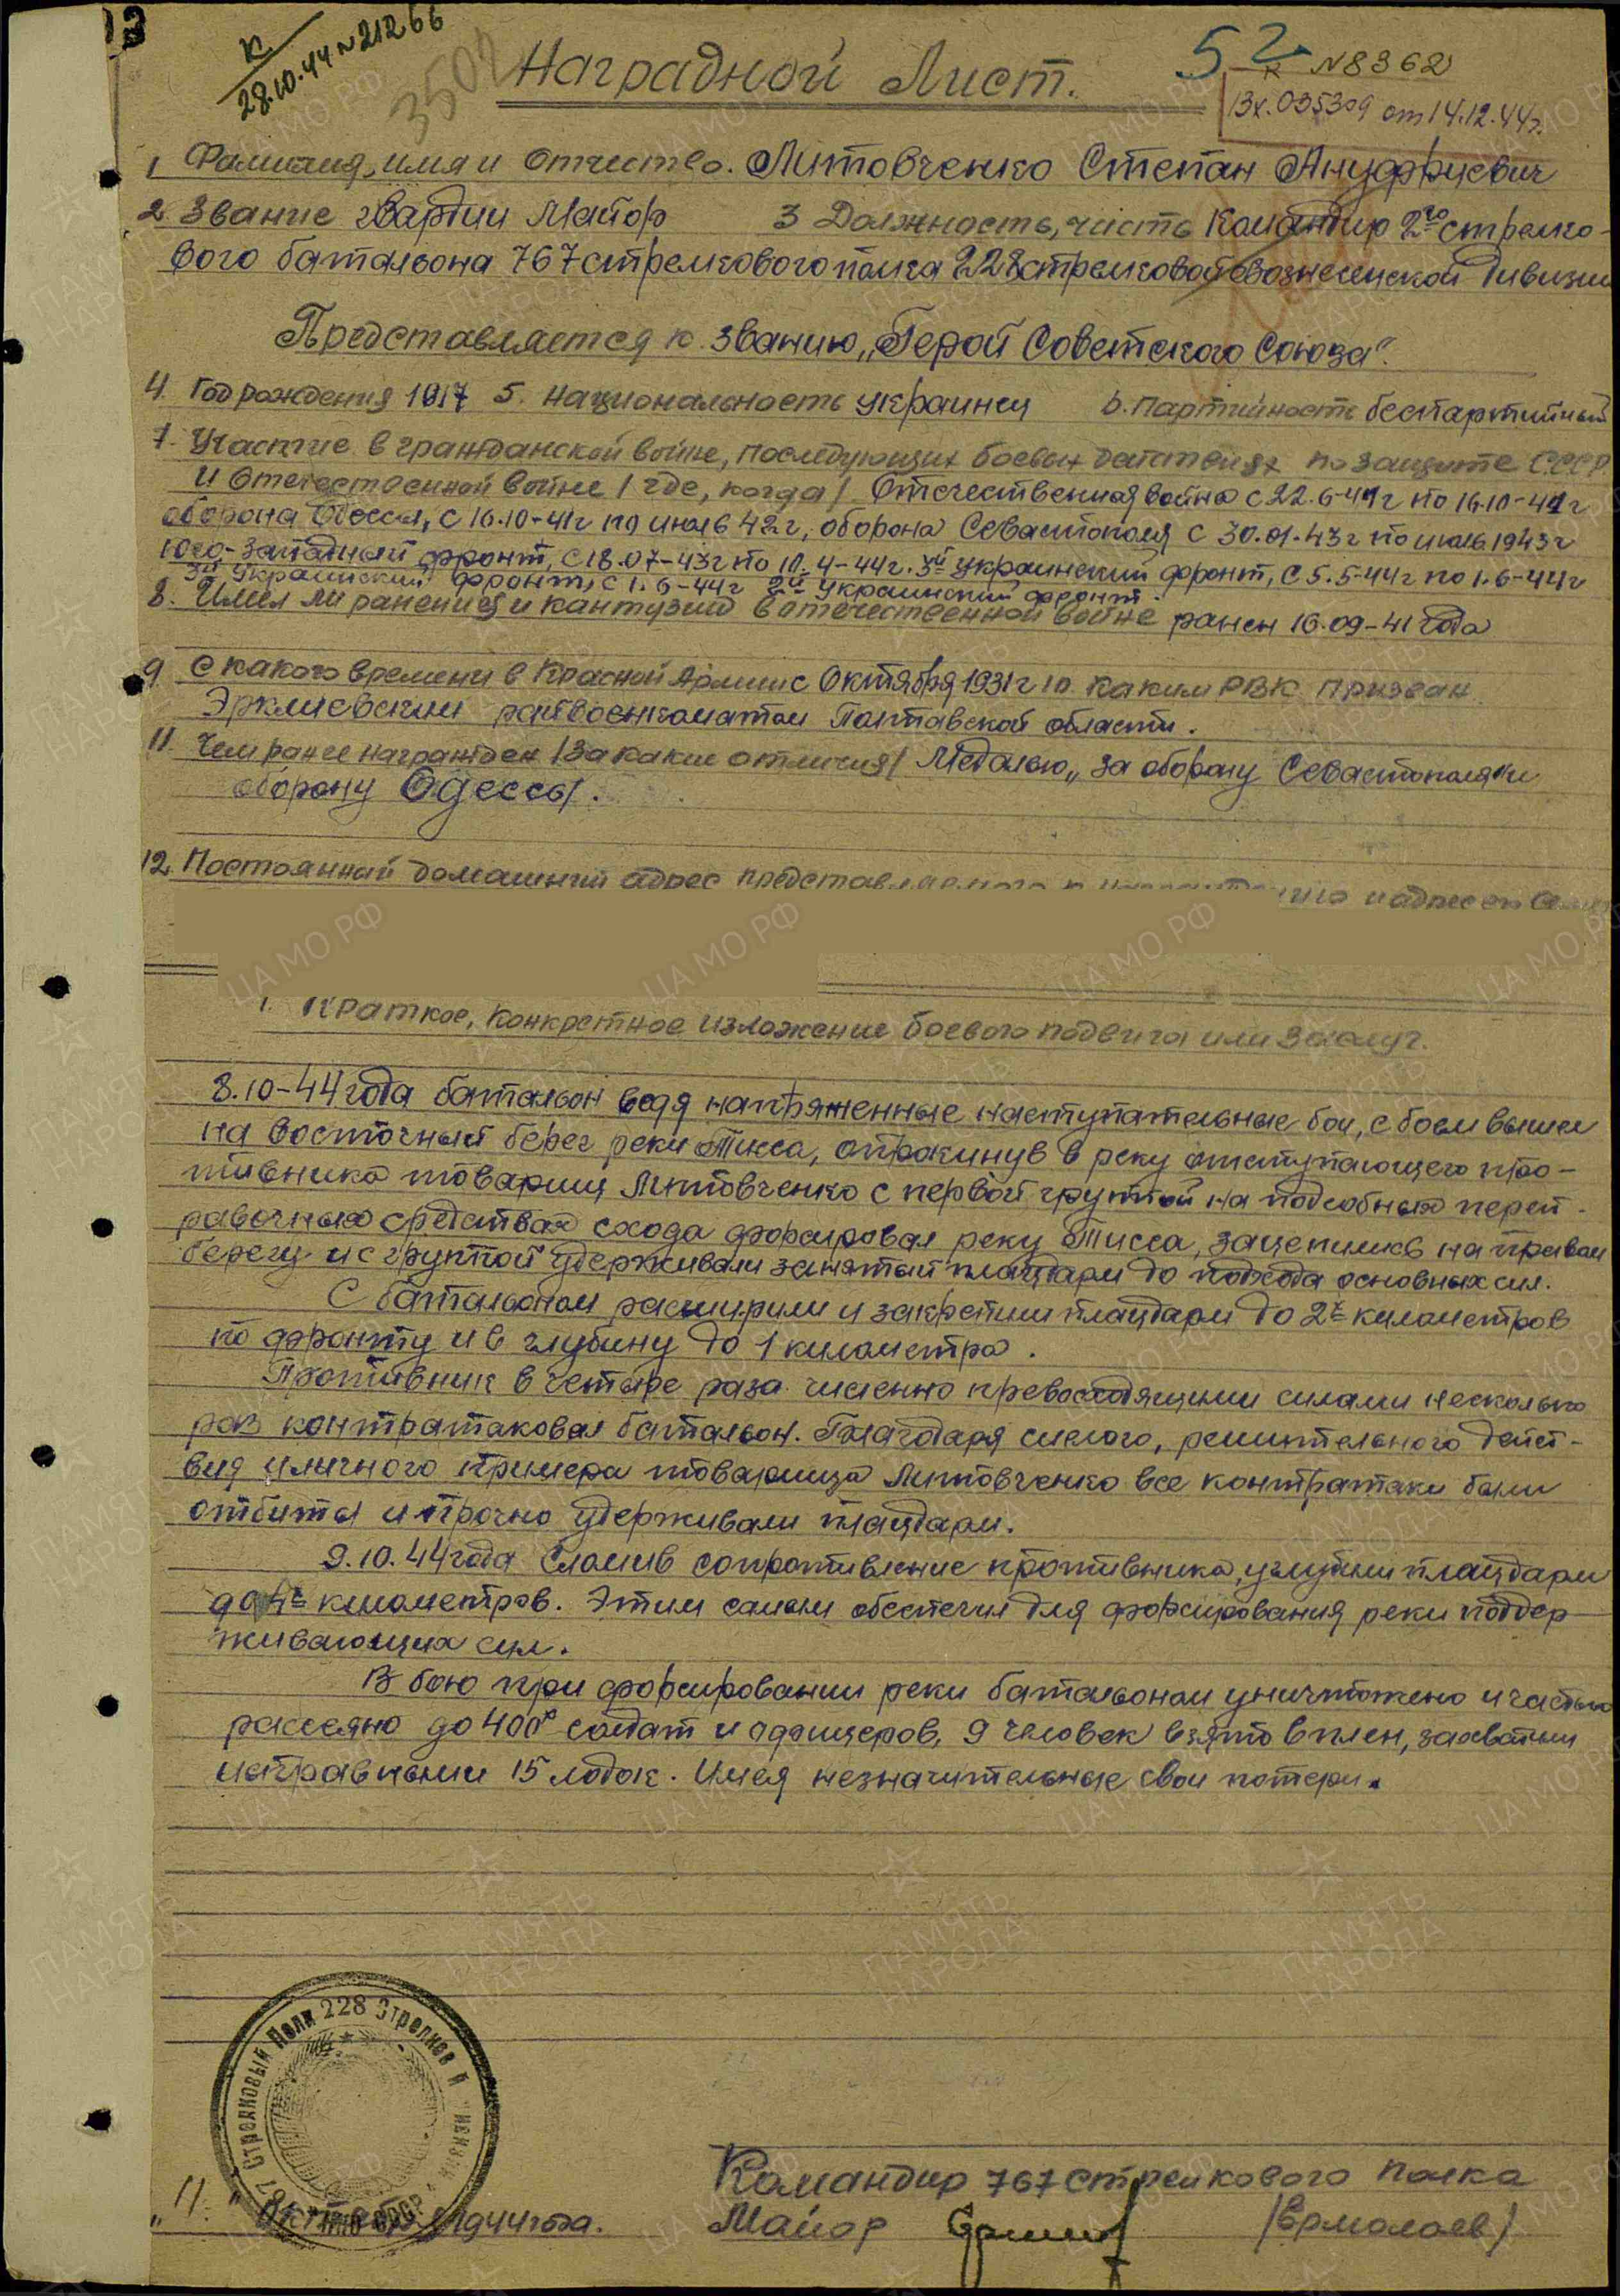 13
К
28.10.44 N 21266
3502
Наградной Лист.
52
к N8362
Вх. 035309 от 14.12.44г.
1. Фамилия, имя и Отчество. Литовченко Степан Ануффриевич
2. Звание гвардии Майор 3 Должность, часть Командир 2го стрелко-
вого батальона 767 стрелкового полка 228 стрелковой вознесенской дивизии
Представляется к званию „Герой Советского Союза".
4. Год рождения 1917 5. Национальность украинец 6. Партийность беспартийный
7. Участие в гражданской войне, последующих боевых действиях по защите СССР
и Отечественной войне /где, когда/ Отечественная война с 22.6-41г по 16.10-41г
оборона Одессы, с 16.10-41г по июль 42г, оборона Севастополя с 30.01.43г по июль 1943г
Юго-Западный фронт, с 18.07-43г по 10.4-44г. 3й украинский фронт, с 5.5-44г по 1.6-44г
3й украинский фронт, с 1.6-44г 2й украинский фронт.
8. Имел ли ранения и кантузии в отечественной войне ранен 16.09-41 года
9. С какого времени в Красной Армии с Октября 1931г 10. Каким РВК призван
Эрклиевским райвоенкоматом Полтавской области.
11. Чем ранее награжден /за какие отличия/ Медалью „за оборону Севастополя и
оборону Одессы.
12. Постоянный домашний адрес представляемого к и адрес его
1. Краткое, конкретное изложение боевого подвига или заслуг.
8.10-44 года батальон ведя напряженные наступательные бои, с боем вышел
на восточный берег реки Тисса, опрокинув в реку отступающего про-
тивника товарищ Литовченко с первой группой на подсобных переп-
равочных средствах сходa форсировал реку Тисса, зацепились на правом
берегу и с группой удерживали занятый плацдарм до подхода основных сил.
С батальоном расширили и закрепили плацдарм до 2х километров
по фронту и в глубину до 1 километра.
Противник в четыре раза численно превосходящими силами несколько
раз контратаковал батальон. Благодаря смелого, решительного дейст-
вия и личного примера товарища Литовченко все контратаки были
отбиты и прочно удерживали плацдарм.
9.10.44 года Сломив сопротивление противника, углубили плацдарм
до 4х километров. Этим самым обеспечил для форсирования реки поддер-
живающих сил.
В бою при форсировании реки батальоном уничтожено и частью
рассеяно до 400 солдат и офицеров, 9 человек взято в плен, захватили
исправными 15 лодок. Имея незначительные свои потери.
767 Стрелковый Полк 228 Стрелков й дивизии НКО СССР
Командир 767 стрелкового полка
„11" октября 1944 года. Майор /Ермолаев/
ПАМЯТЬ НАРОДА
ЦА МО РФ